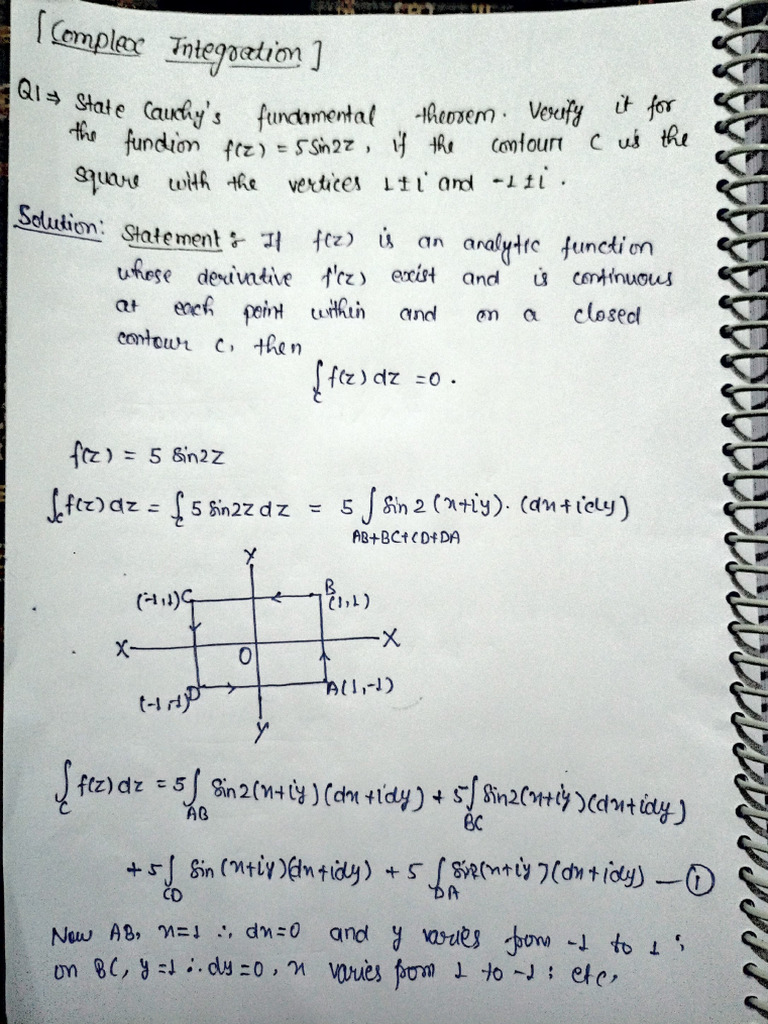 [Complex Integration]
Q1⇒ State Cauchy's fundamental theorem. Verify it for
the function f(z) = 5 Sin2z, if the contour C is the
square with the vertices 1±i and -1±i.
Solution: Statement :- If f(z) is an analytic function
whose derivative f'(z) exist and is continuous
at each point within and on a closed
contour C, then
∫_C f(z) dz = 0.
f(z) = 5 Sin2z
∫_C f(z) dz = ∫_C 5 Sin2z dz = 5 ∫ Sin 2 (x+iy). (dx+idy)
AB+BC+CD+DA
Y
(-1,1) C B (1,1)
X O X
(-1,-1) D A (1,-1)
Y
∫_C f(z) dz = 5 ∫_AB Sin2(x+iy) (dx+idy) + 5 ∫_BC Sin2(x+iy) (dx+idy)
+ 5 ∫_CD Sin (x+iy) (dx+idy) + 5 ∫_DA Sin2(x+iy) (dx+idy) — ①
Now AB, x=1 ∴ dx=0 and y varies from -1 to 1 ;
on BC, y=1 ∴ dy=0, x varies from 1 to -1 ; etc,